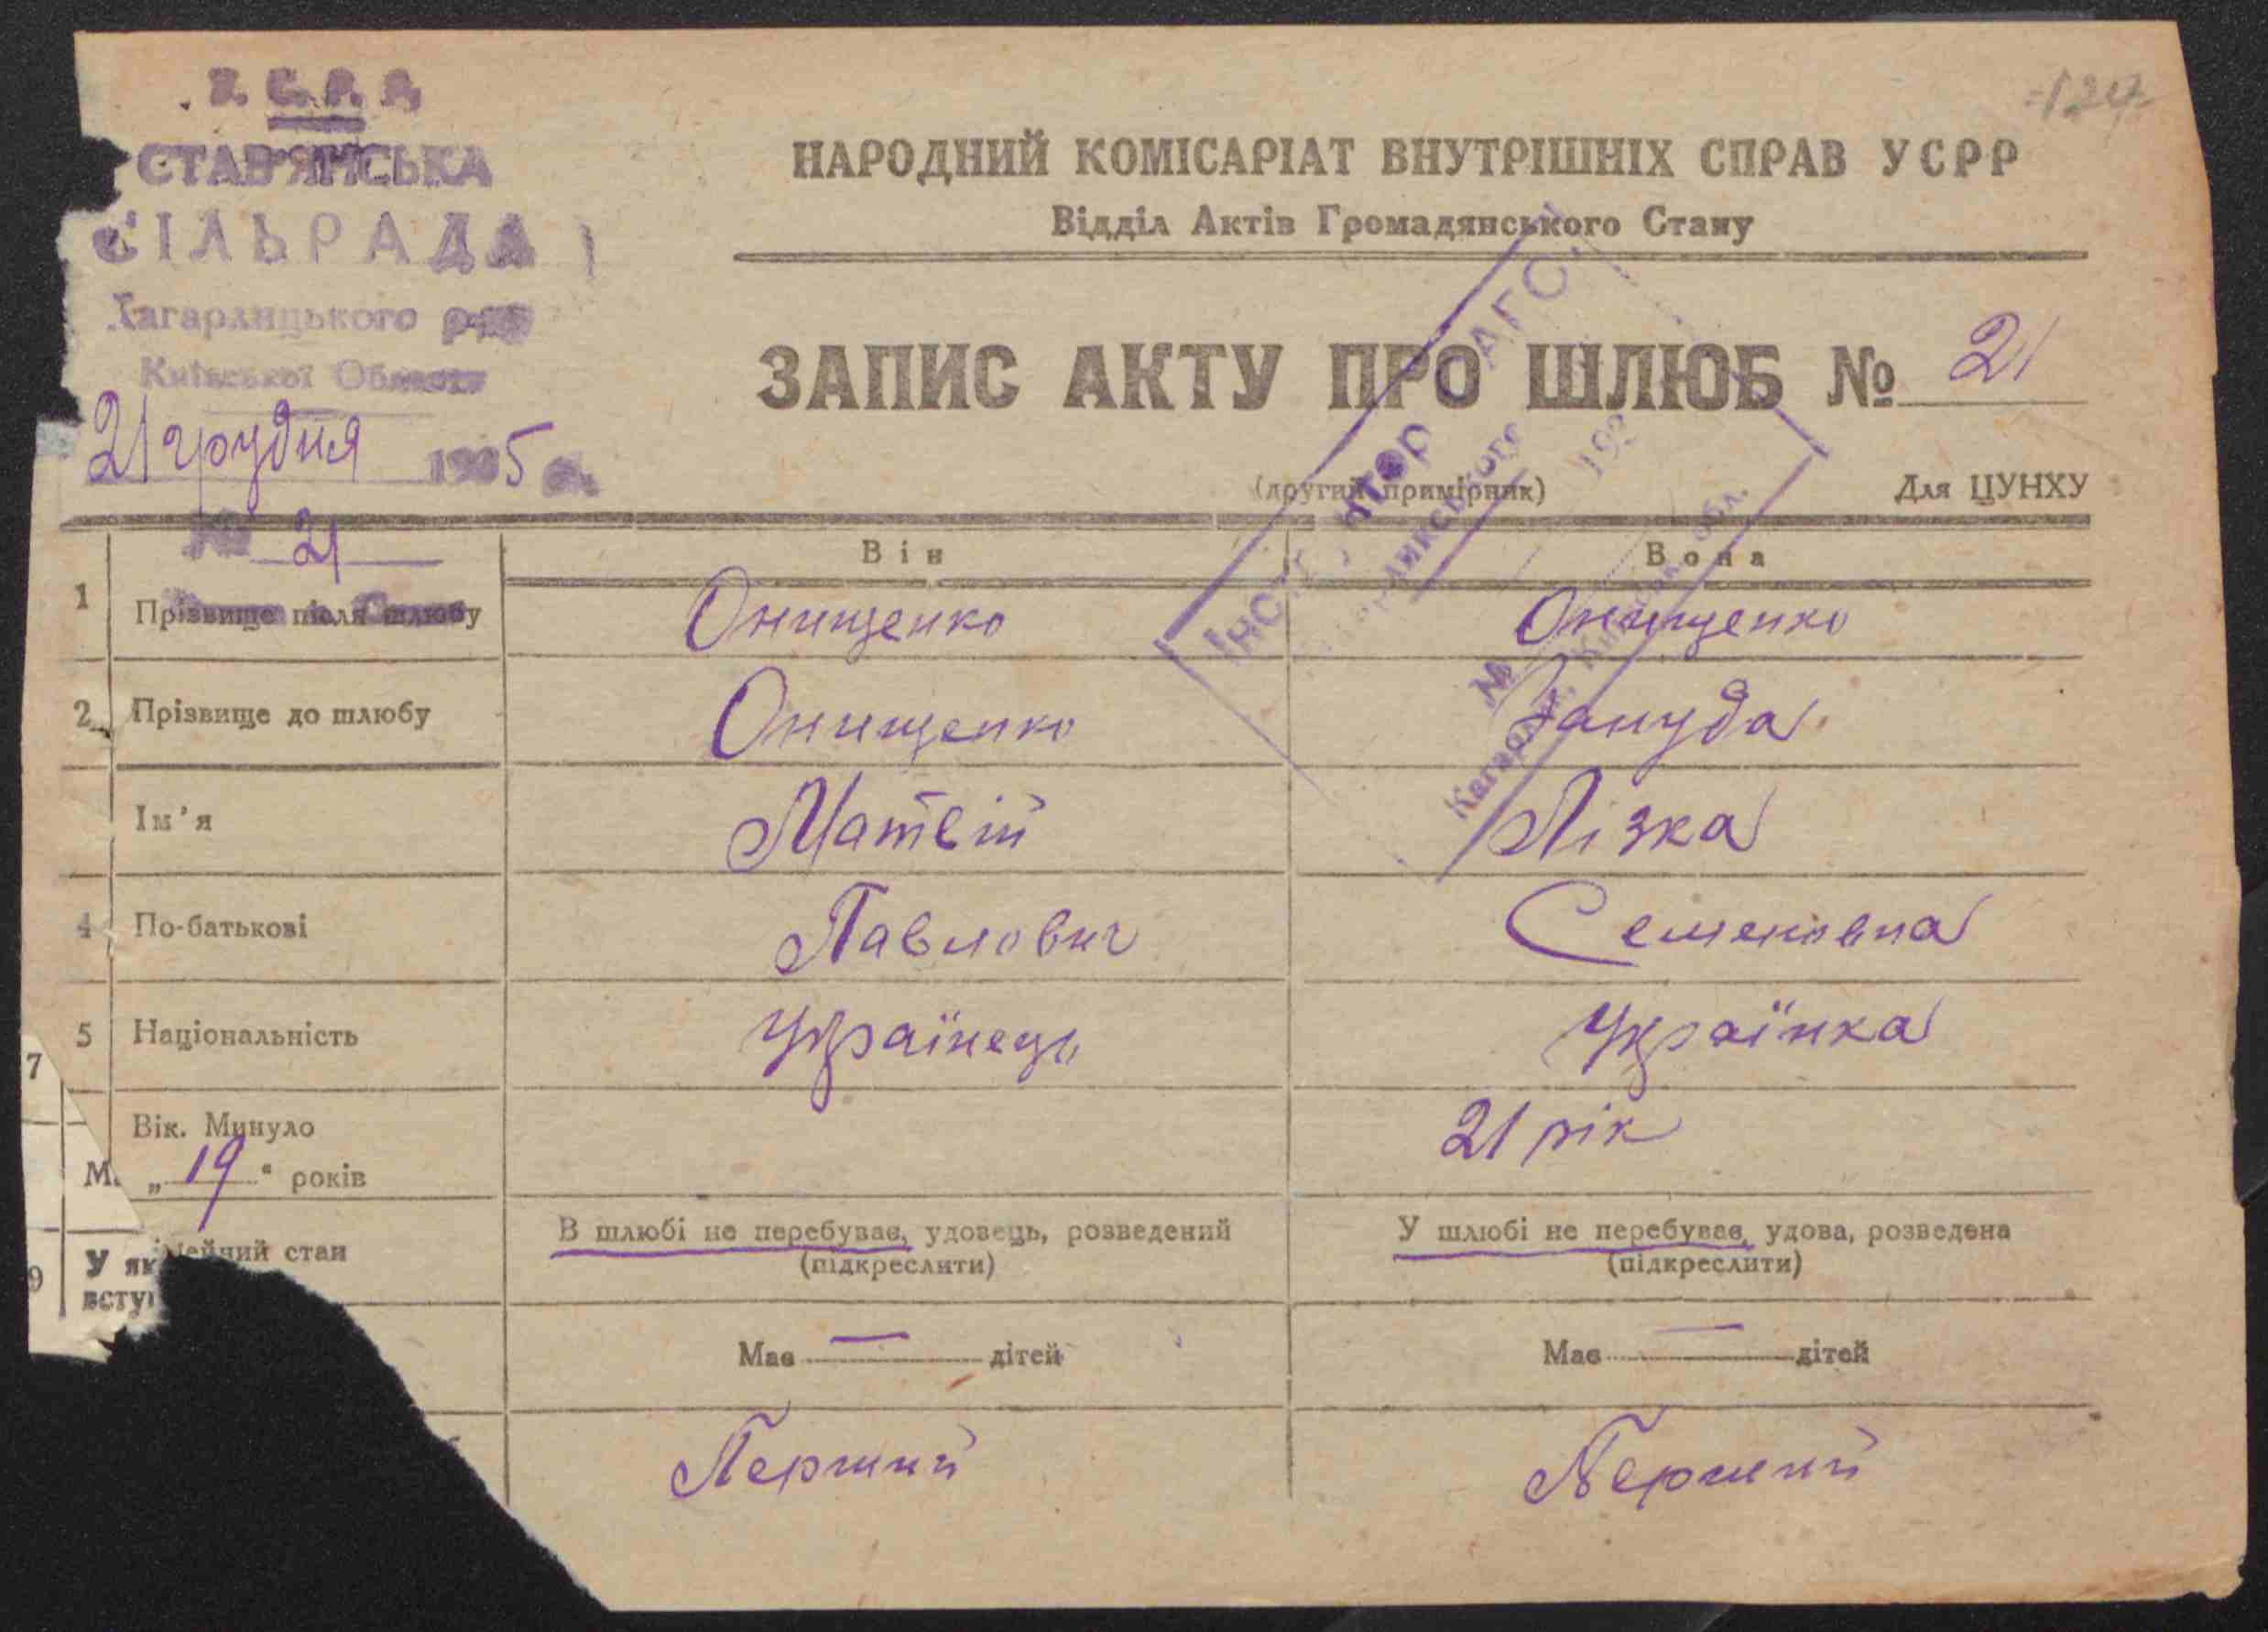 У. С. Р. Р.
СТАВ'ЯНСЬКА
СІЛЬРАДА
Кагарлицького р-ну
Київської Области
21 грудня 1935 р.
№ 21
124
НАРОДНИЙ КОМІСАРІАТ ВНУТРІШНІХ СПРАВ УСРР
Відділ Актів Громадянського Стану
ЗАПИС АКТУ ПРО ШЛЮБ № 21
(другий примірник)
Для ЦУНХУ
Він Вона
1 Прізвище після шлюбу Онищенко Онищенко
2 Прізвище до шлюбу Онищенко Зануда
Ім'я Матвій Лізка
4 По-батькові Павлович Семеновна
5 Національність Українець Українка
7
Вік. Минуло
„19“ років 21 рік
М.
В шлюбі не перебуває, удовець, розведений У шлюбі не перебуває, удова, розведена
стан (підкреслити) (підкреслити)
9 У як
всту
Має — дітей Має — дітей
Перший Перший